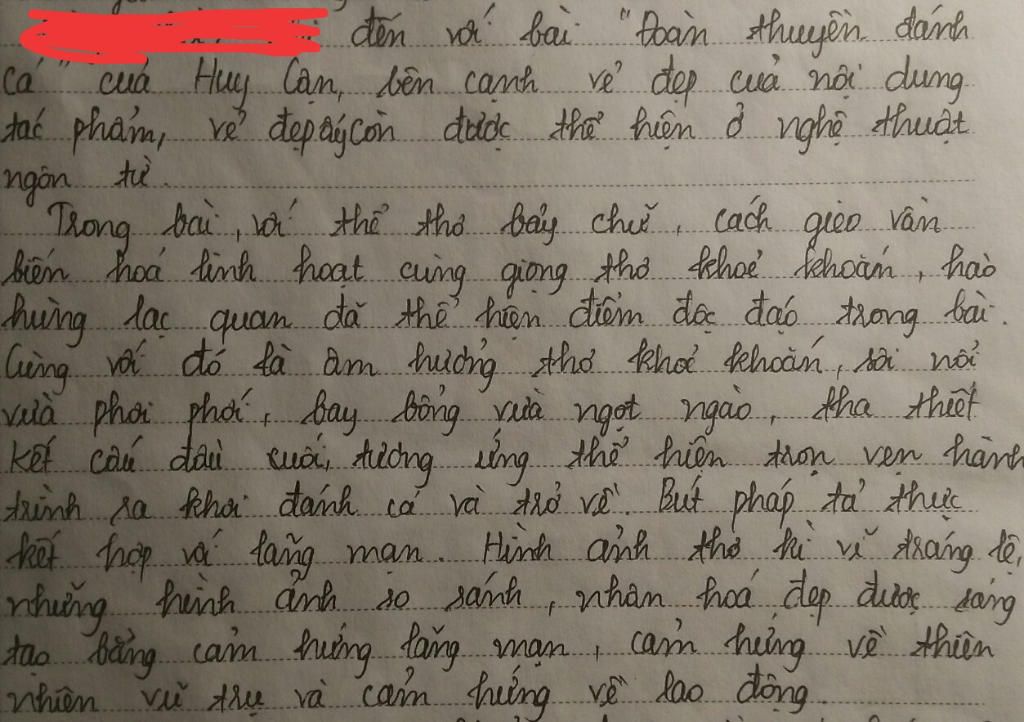 đến với bài "Đoàn thuyền đánh
cá" của Huy Cận, bên cạnh vẻ đẹp của nội dung
tác phẩm, vẻ đẹp ấy còn được thể hiện ở nghệ thuật
ngôn từ.
Trong bài, với thể thơ bảy chữ, cách gieo vần
biến hoá linh hoạt cùng giọng thơ khoẻ khoắn, hào
hùng lạc quan đã thể hiện điểm độc đạo trong bài.
Cùng với đó là âm hưởng thơ khoẻ khoắn, sôi nổi
vừa phơi phới, bay bổng vừa ngọt ngào, tha thiết
kết cấu đầu cuối, tương ứng thể hiện trọn vẹn hành
trình ra khơi đánh cá và trở về. Bút pháp tả thực
kết hợp với lãng mạn. Hình ảnh thơ kì vĩ tráng lệ,
những hình ảnh so sánh, nhân hoá đẹp được sáng
tạo bằng cảm hứng lãng mạn, cảm hứng về thiên
nhiên vũ trụ và cảm hứng về lao động.